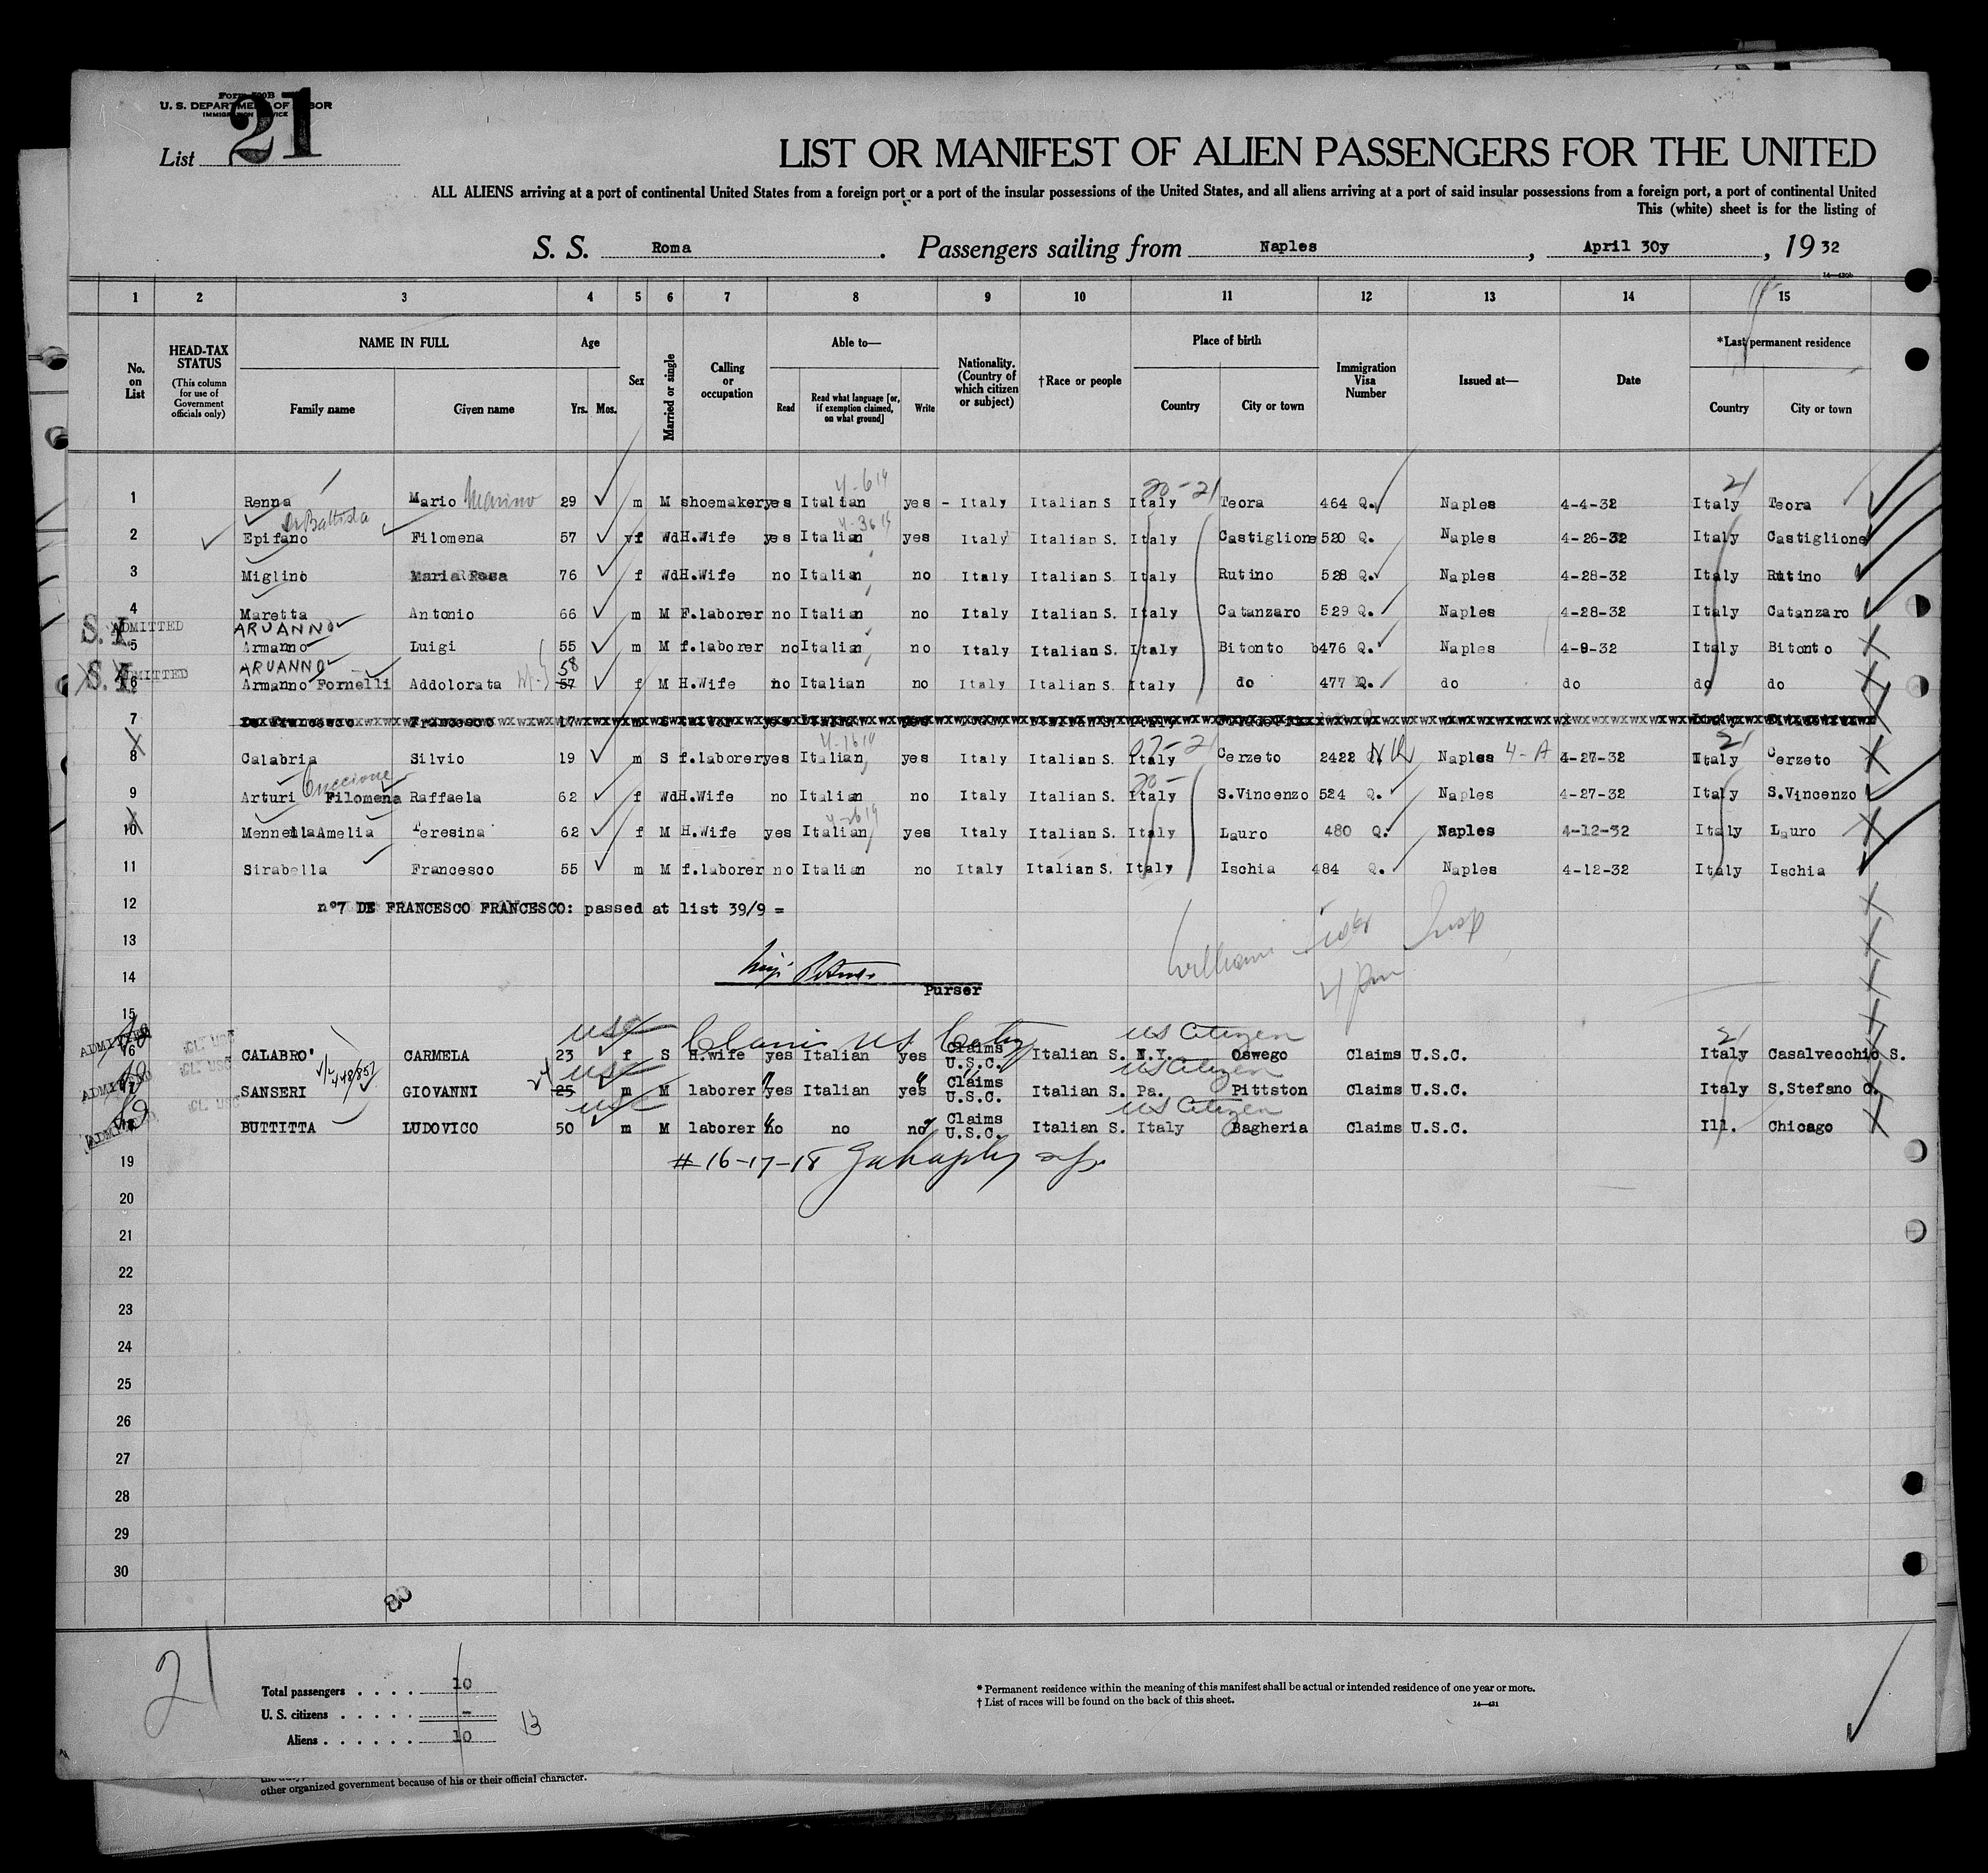 Form 500B
U. S. DEPARTMENT OF LABOR
IMMIGRATION SERVICE
List 21
LIST OR MANIFEST OF ALIEN PASSENGERS FOR THE UNITED
ALL ALIENS arriving at a port of continental United States from a foreign port or a port of the insular possessions of the United States, and all aliens arriving at a port of said insular possessions from a foreign port, a port of continental United
This (white) sheet is for the listing of
S. S. Roma. Passengers sailing from Naples, April 30y, 1932
14—420b
1 2 3 4 5 6 7 8 9 10 11 12 13 14 15
No. on List
HEAD-TAX STATUS (This column for use of Government officials only)
NAME IN FULL
Family name Given name
Age
Yrs. Mos.
Sex
Married or single
Calling or occupation
Able to—
Read Read what language [or, if exemption claimed, on what ground] Write
Nationality. (Country of which citizen or subject)
†Race or people
Place of birth
Country City or town
Immigration Visa Number
Issued at—
Date
*Last permanent residence
Country City or town
21
1 Renna Mario Marino 29 m M shoemaker yes Italian yes - Italy Italian S Italy Teora 464 Q. Naples 4-4-32 Italy Teora
Di Battista
2 Epifano Filomena 57 f Wd H.Wife yes Italian yes Italy Italian S. Italy Castiglione 520 Q. Naples 4-26-32 Italy Castiglione
3 Miglino Maria Rosa 76 f Wd H.Wife no Italian no Italy Italian S. Italy Rutino 528 Q. Naples 4-28-32 Italy Rutino
4 Maretta Antonio 66 m M F.laborer no Italian no Italy Italian S. Italy Catanzaro 529 Q. Naples 4-28-32 Italy Catanzaro
S.I. ADMITTED ARUANNO
5 Armanno Luigi 55 m M f.laborer no Italian no Italy Italian S. Italy Bitonto 476 Q. Naples 4-9-32 Italy Bitonto
S.I. ADMITTED ARUANNO 58
6 Armanno Fornelli Addolorata 57 f M H.Wife no Italian no Italy Italian S. Italy do 477 Q. do do do do
7 De Francesco Francesco 17
21
8 Calabria Silvio 19 m S f.laborer yes Italian yes Italy Italian S. Italy Cerzeto 2422 Naples 4-A 4-27-32 Italy Cerzeto
9 Arturi Filomena Raffaela 62 f Wd H.Wife no Italian no Italy Italian S. Italy S.Vincenzo 524 Q. Naples 4-27-32 Italy S.Vincenzo
10 Mennella Amelia Teresina 62 f M H.Wife yes Italian yes Italy Italian S. Italy Lauro 480 Q. Naples 4-12-32 Italy Lauro
11 Sirabella Francesco 55 m M f.laborer no Italian no Italy Italian S. Italy Ischia 484 Q. Naples 4-12-32 Italy Ischia
12 n°7 DE FRANCESCO FRANCESCO: passed at list 39/9 =
13
14
Purser
4 pm
15
USC US Citizen 21
ADMITTED 16 CALABRO' CARMELA 23 f S H.wife yes Italian yes Claims U.S.C. Italian S. N.Y. Oswego Claims U.S.C. Italy Casalvecchio S.
USC US Citizen
ADMITTED 17 SANSERI GIOVANNI 25 m M laborer yes Italian yes Claims U.S.C. Italian S. Pa. Pittston Claims U.S.C. Italy S.Stefano C.
USC US Citizen
ADMITTED 18 BUTTITTA LUDOVICO 50 m M laborer no no no Claims U.S.C. Italian S. Italy Bagheria Claims U.S.C. Ill. Chicago
19 # 16-17-18
20
21
22
23
24
25
26
27
28
29
30
80
21
Total passengers . . . . 10
U. S. citizens . . . . . -
Aliens . . . . . . 10
13
* Permanent residence within the meaning of this manifest shall be actual or intended residence of one year or more.
† List of races will be found on the back of this sheet.
14—421
other organized government because of his or their official character.